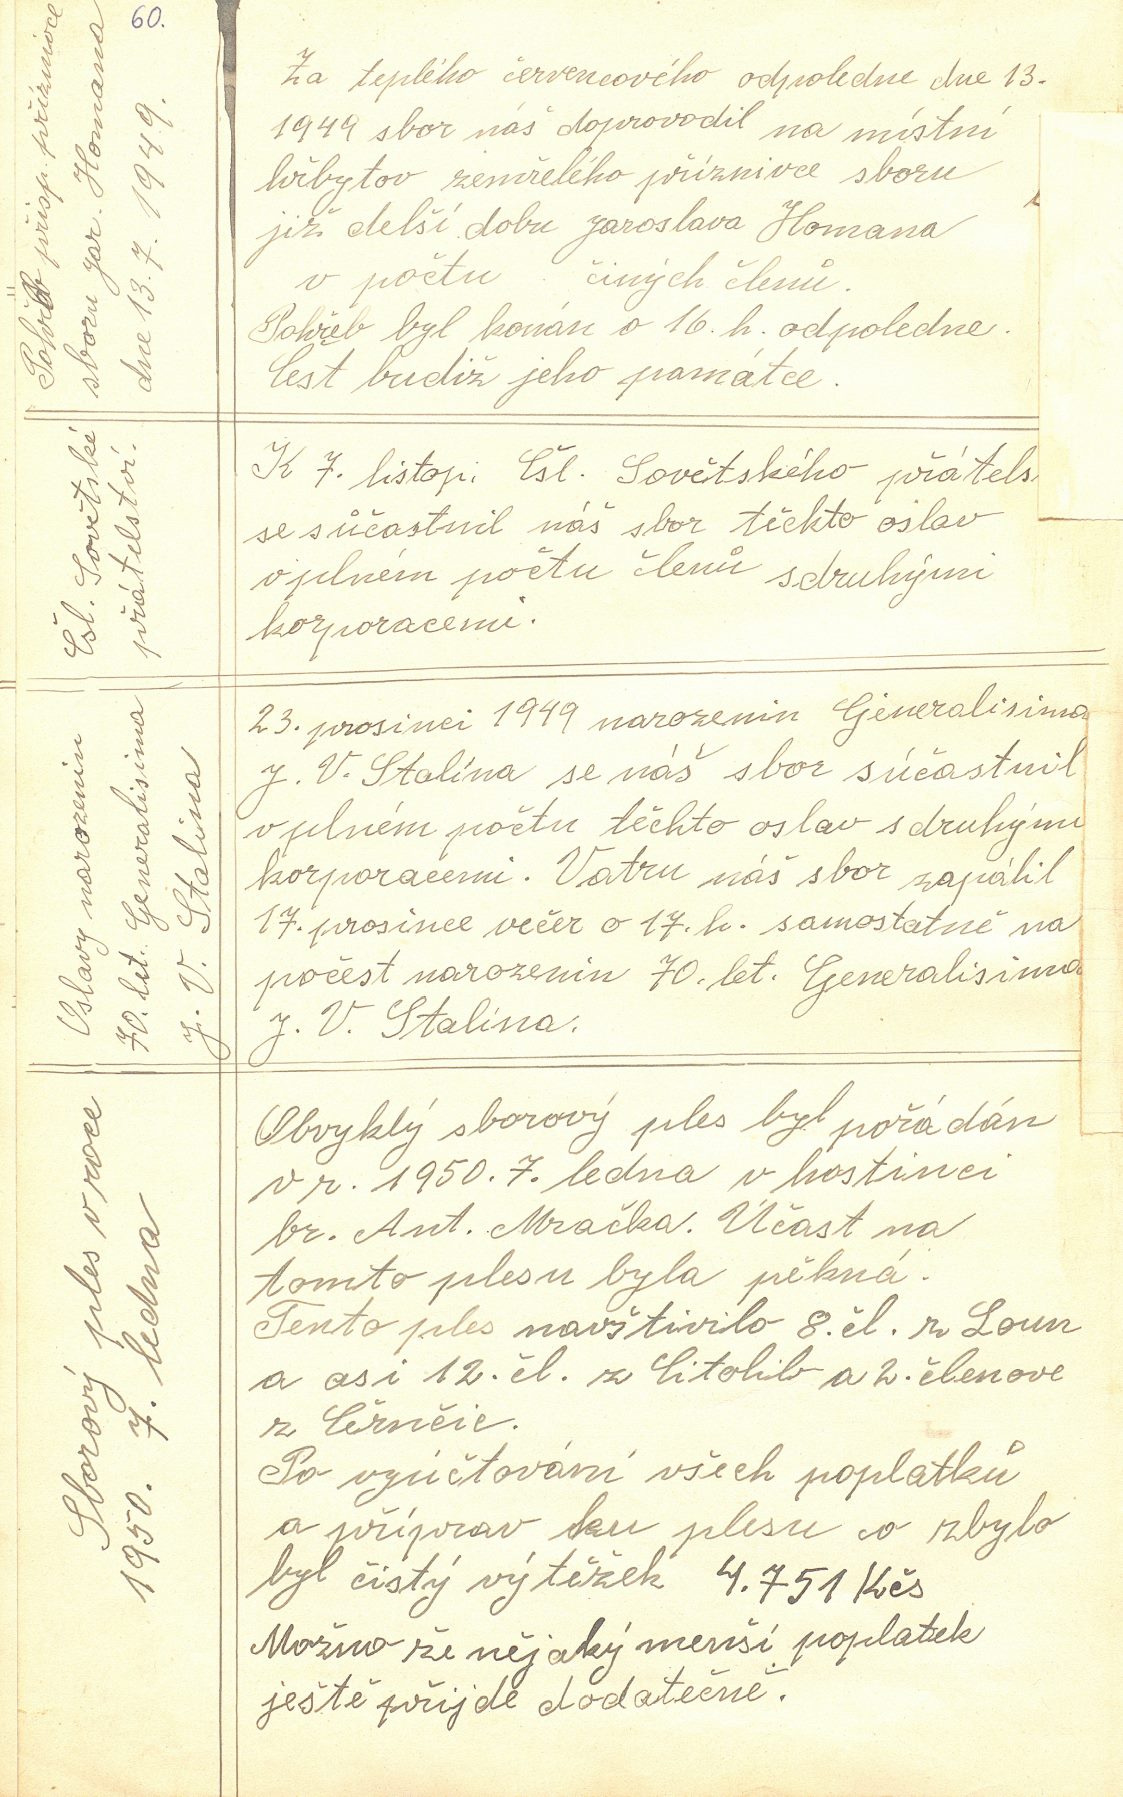 60.
Pohřeb přísp. příznivce
sboru Jar. Homana
dne 13. 7. 1949.
Za teplého červencového odpoledne dne 13.
1949 sbor náš doprovodil na místní
hřbytov zemřelého příznivce sboru
již delší dobu Jaroslava Homana
v počtu činých členů.
Pohřeb byl konán o 16. h. odpoledne.
Čest budiž jeho památce.
Čsl. Sovětské
přátelství.
K 7. listop. Čsl. Sovětského přátels.
se súčastnil náš sbor těchto oslav
v plném počtu členů s druhými
korporacemi.
Oslavy narozenin
70. let. Generalisima
J. V. Stalina
23. prosinci 1949 narozenin Generalisima
J. V. Stalina se náš sbor súčastnil
v plném počtu těchto oslav s druhými
korporacemi. Vatru náš sbor zapálil
17. prosince večer o 17. h. samostatně na
počest narozenin 70. let. Generalisima
J. V. Stalina.
Sborový ples v roce
1950. 7. ledna
Obvyklý sborový ples byl pořádán
v r. 1950. 7. ledna v hostinci
br. Ant. Mračka. Účast na
tomto plesu byla pěkná.
Tento ples navštivilo 8. čl. z Loun
a asi 12. čl. z Citolib a 2. členove
z Černčic.
Po vyúčtování všech poplatků
a příprav ku plesu co zbylo
byl čistý výtěžek 4.751 Kčs
Možno že nějaký menší poplatek
ještě přijde dodatečně.